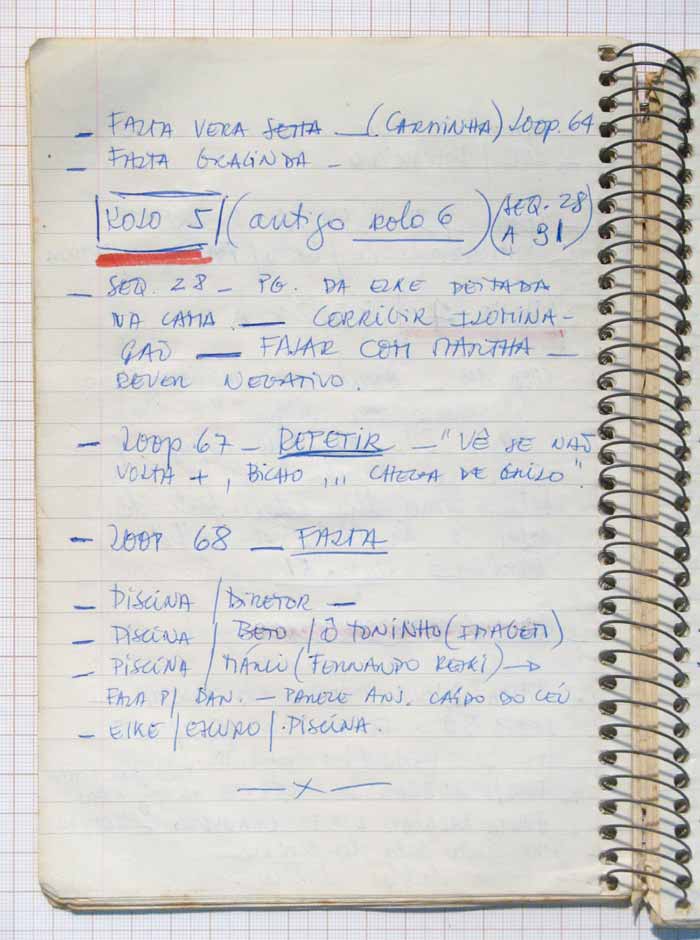 - FALTA VERA SETTA - (CARMINHA) LOOP. 64
- FALTA EXALINDA -
ROLO 5 (antigo rolo 6) (SEQ. 28 A 31)
- SEQ. 28 - PG. DA EIKE DEITADA
NA CAMA. - CORRIGIR ILOMINA-
ÇÃO - FALAR COM MARTHA -
REVER NEGATIVO.
- LOOP. 67 - REPETIR - "VÊ SE NÃO
VOLTA +, BICHO ,,, CHEGA DE GRILO".
- LOOP 68 - FALTA
- PISCINA / DIRETOR -
- PISCINA / BETO / Ô TONINHO (IMAGEM)
- PISCINA / MÁRCIO (FERNANDO) →
FALA P/ DAN. - PARECE ANJ. CAÍDO DO CÉU
- EIKE / ESCURO / PISCINA.
— x —